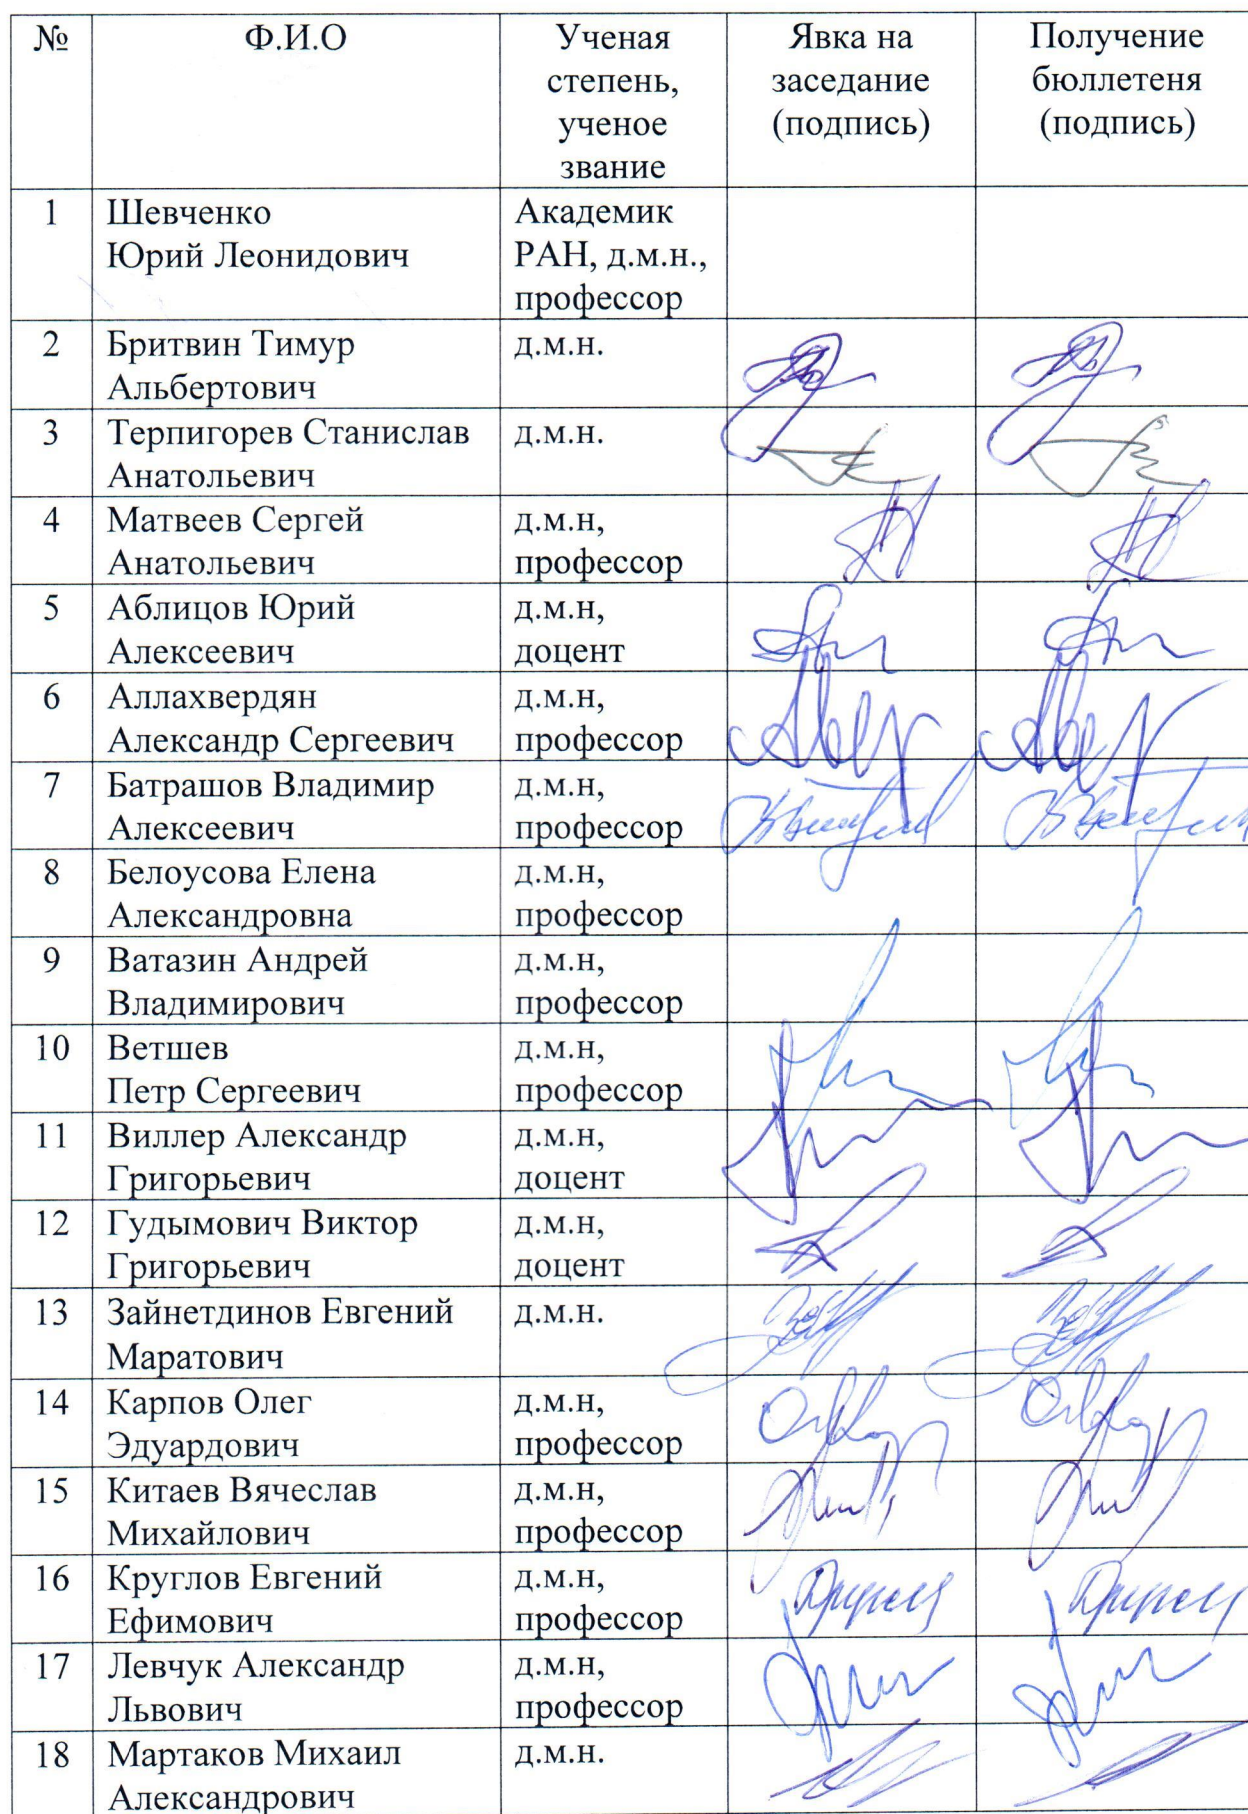 № Ф.И.О Ученая степень, ученое звание Явка на заседание (подпись) Получение бюллетеня (подпись)
1 Шевченко Академик
Юрий Леонидович РАН, д.м.н.,
профессор
2 Бритвин Тимур д.м.н.
Альбертович
3 Терпигорев Станислав д.м.н.
Анатольевич
4 Матвеев Сергей д.м.н,
Анатольевич профессор
5 Аблицов Юрий д.м.н,
Алексеевич доцент
6 Аллахвердян д.м.н,
Александр Сергеевич профессор
7 Батрашов Владимир д.м.н,
Алексеевич профессор
8 Белоусова Елена д.м.н,
Александровна профессор
9 Ватазин Андрей д.м.н,
Владимирович профессор
10 Ветшев д.м.н,
Петр Сергеевич профессор
11 Виллер Александр д.м.н,
Григорьевич доцент
12 Гудымович Виктор д.м.н,
Григорьевич доцент
13 Зайнетдинов Евгений д.м.н.
Маратович
14 Карпов Олег д.м.н,
Эдуардович профессор
15 Китаев Вячеслав д.м.н,
Михайлович профессор
16 Круглов Евгений д.м.н,
Ефимович профессор
17 Левчук Александр д.м.н,
Львович профессор
18 Мартаков Михаил д.м.н.
Александрович